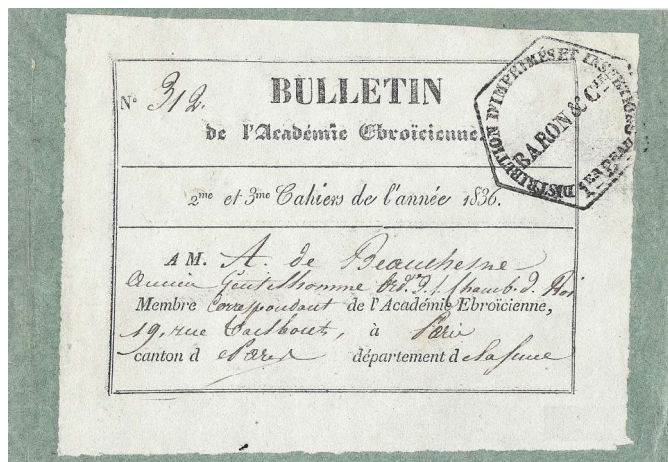 N° 312.
BULLETIN
de l'Académie Ebroïcienne.
DISTRIBUTION D'IMPRIMÉS ET INSERTIONS
BARON & Cie
1ER BEAU
2me et 3me Cahiers de l'année 1836.
A M. A. de Beauchesne
ancien Gentilhomme Ord. d. l. Chamb. d. Roi
Membre Correspondant de l'Académie Ebroïcienne,
19, rue Taitbout, à Paris
canton d e Paris département d e la Seine